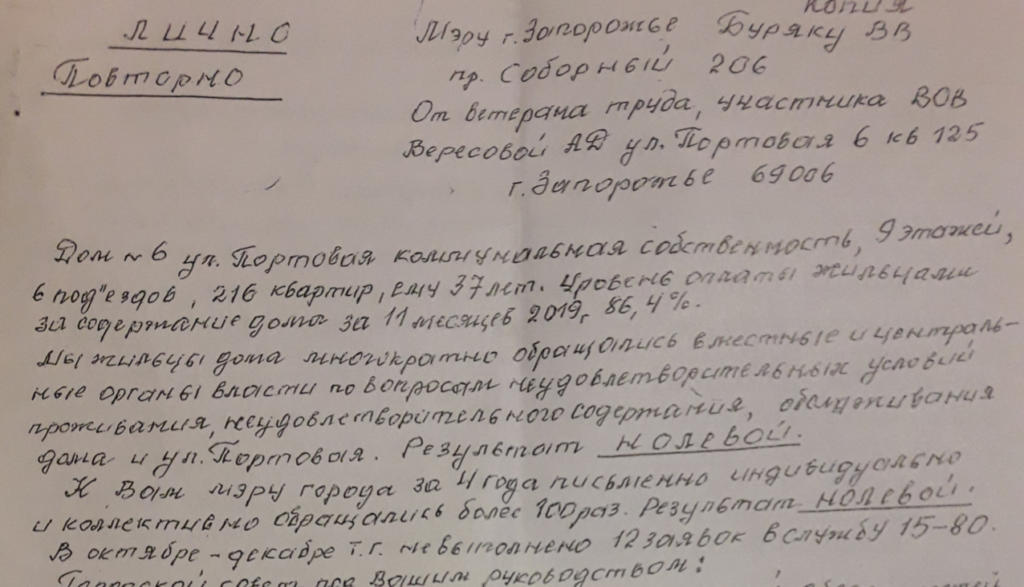 копия
Лично
Мэру г. Запорожье Буряку ВВ
Повторно
пр. Соборный 206
От ветерана труда, участника ВОВ
Вересовой АД ул. Портовая 6 кв 125
г. Запорожье 69006
Дом №6 ул. Портовая коммунальная собственность, 9 этажей,
6 под"ездов, 216 квартир, ему 37 лет. Уровень оплаты жильцами
за содержание дома за 11 месяцев 2019г 86,4%.
Мы жильцы дома многократно обращались в местные и централь-
ные органы власти по вопросам неудовлетворительных условий
проживания, неудовлетворительного содержания, обслуживания
дома и ул. Портовая. Результат нолевой.
К Вам мэру города за 4 года письменно индивидуально
и коллективно обращались более 100 раз. Результат нолевой.
В октябре-декабре т.г. невыполнено 12 заявок в службу 15-80.
Городской совет под Вашим руководством: